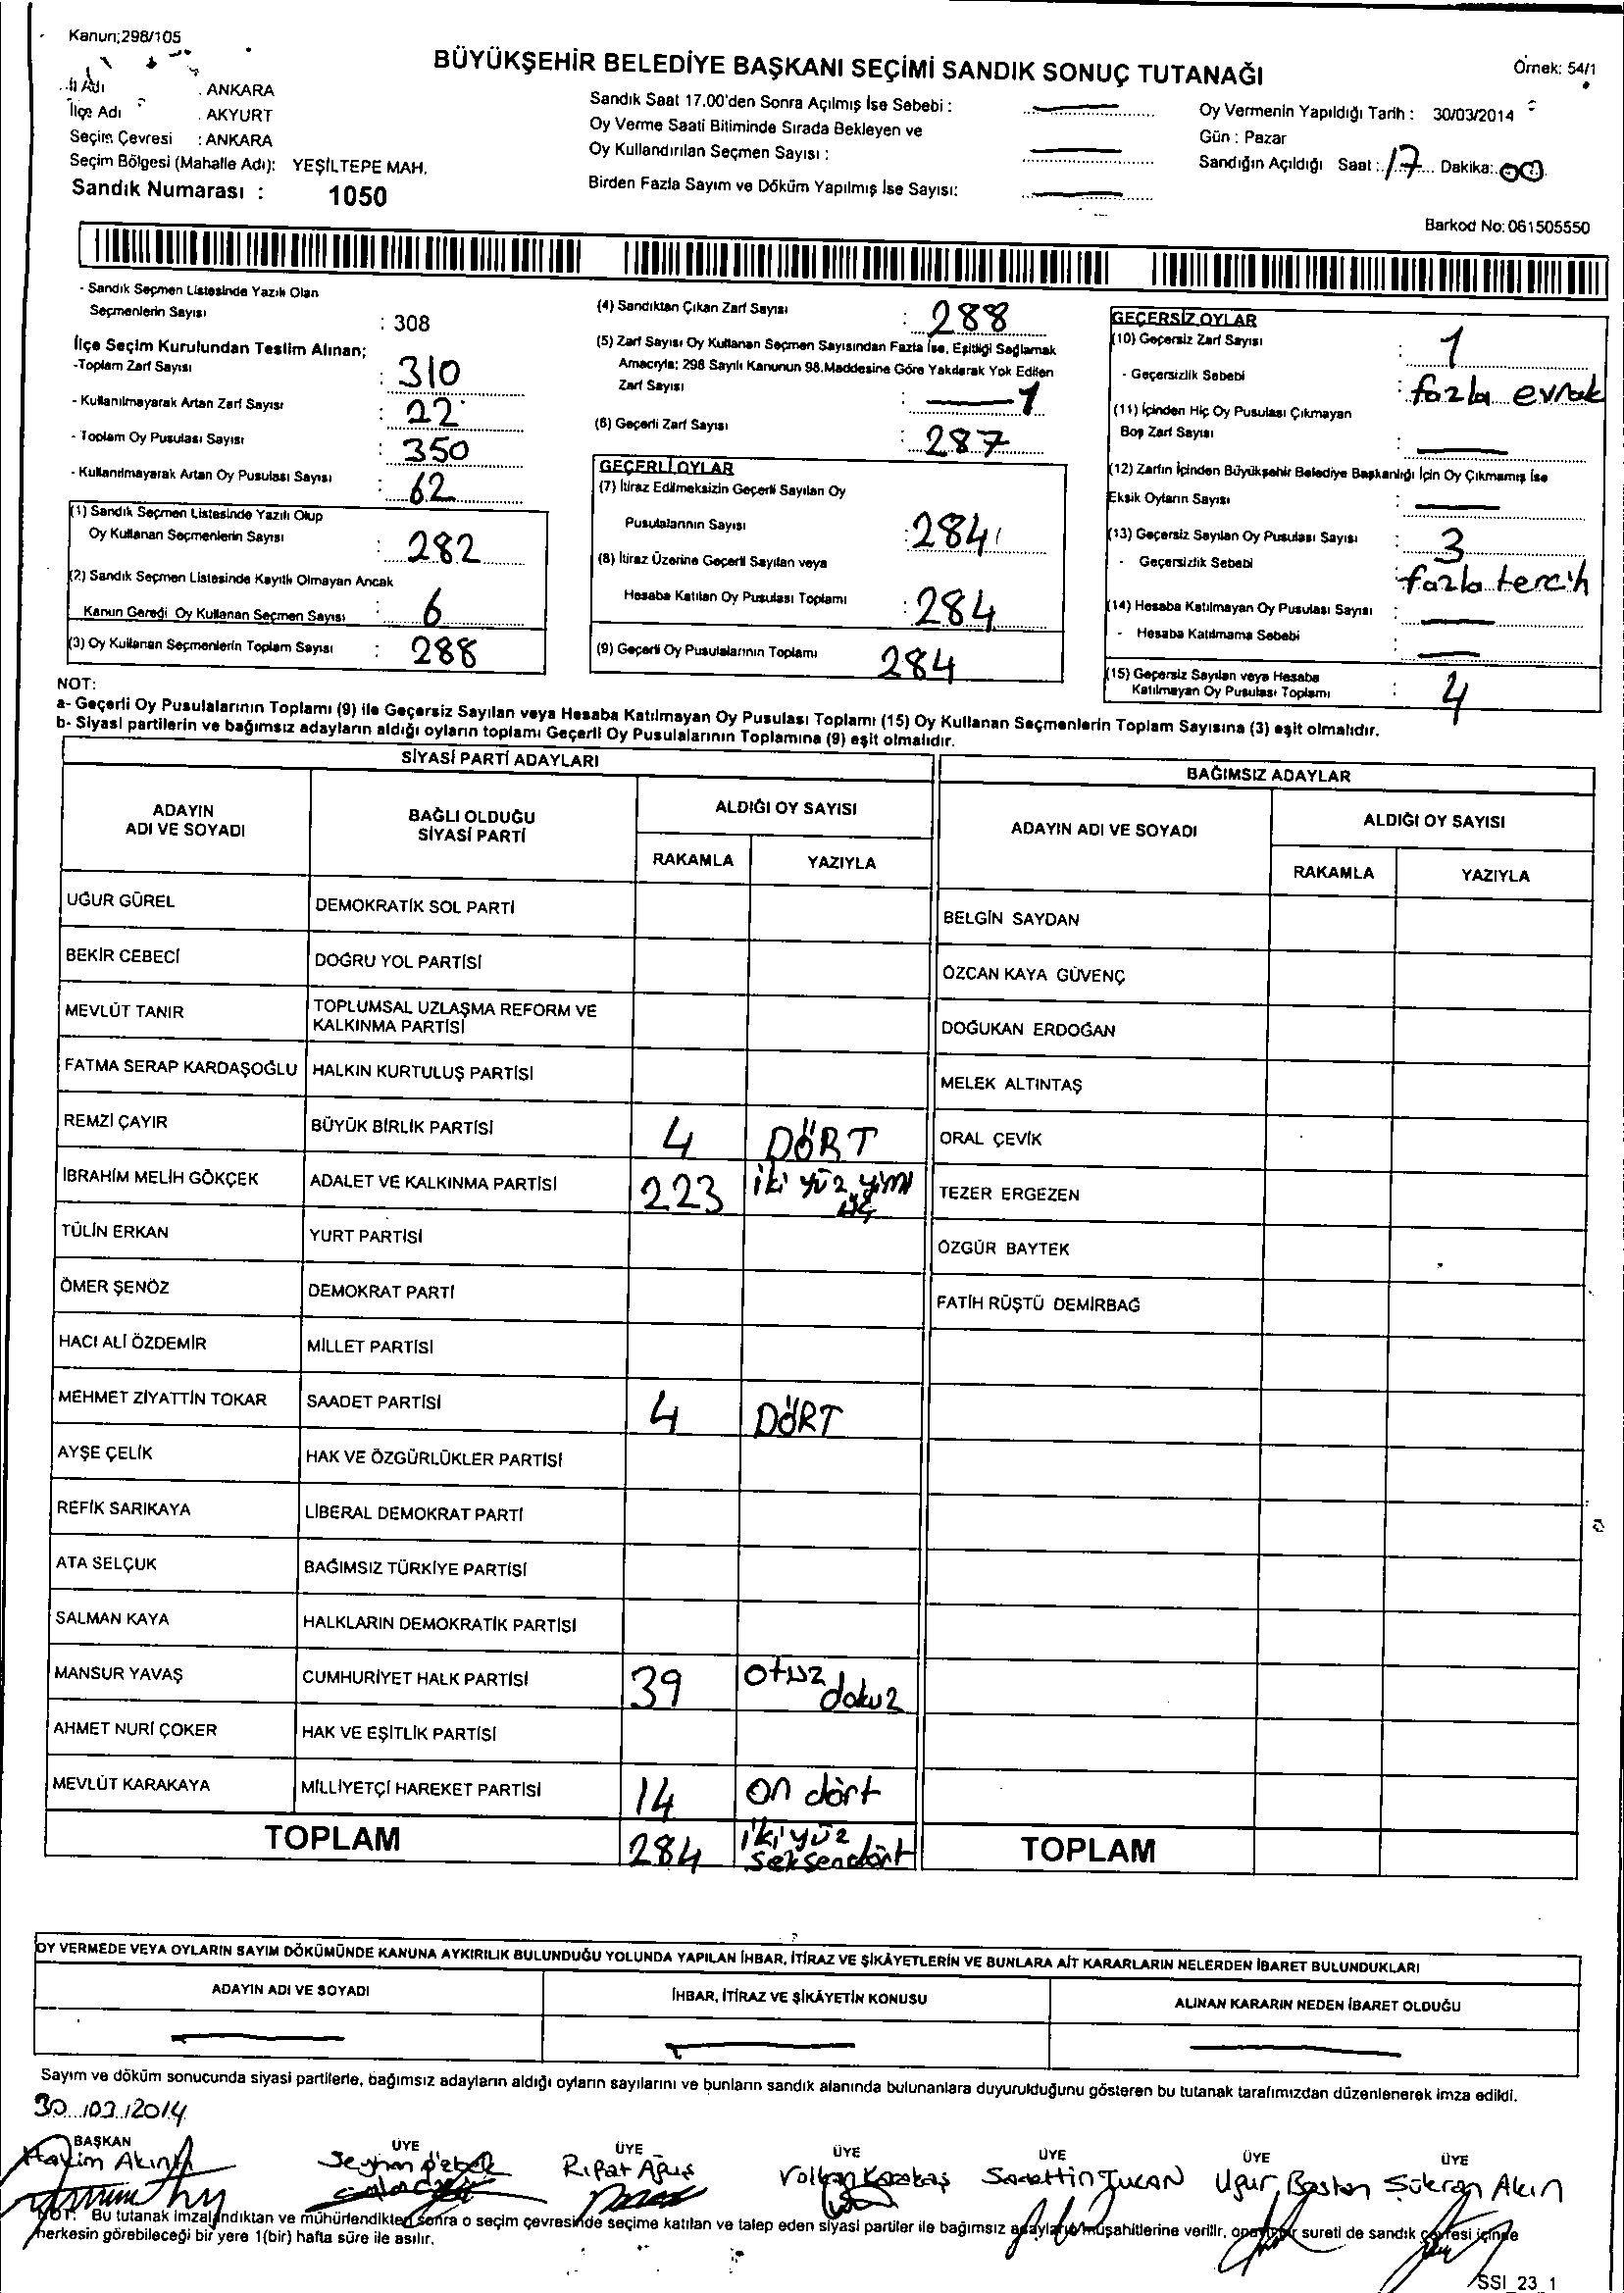 Kanun;298/105
BÜYÜKŞEHİR BELEDİYE BAŞKANI SEÇİMİ SANDIK SONUÇ TUTANAĞI
Örnek: 54/1
İli Adı : ANKARA
İlçe Adı : AKYURT
Seçim Çevresi : ANKARA
Seçim Bölgesi (Mahalle Adı): YEŞİLTEPE MAH.
Sandık Numarası : 1050
Sandık Saat 17.00'den Sonra Açılmış İse Sebebi :
Oy Verme Saati Bitiminde Sırada Bekleyen ve
Oy Kullandırılan Seçmen Sayısı :
Birden Fazla Sayım ve Döküm Yapılmış İse Sayısı:
Oy Vermenin Yapıldığı Tarih : 30/03/2014
Gün : Pazar
Sandığın Açıldığı Saat : 17 Dakika: 00
Barkod No: 061505550
- Sandık Seçmen Listesinde Yazılı Olan
Seçmenlerin Sayısı : 308
İlçe Seçim Kurulundan Teslim Alınan;
-Toplam Zarf Sayısı : 310
- Kullanılmayarak Artan Zarf Sayısı : 22
- Toplam Oy Pusulası Sayısı : 350
- Kullanılmayarak Artan Oy Pusulası Sayısı : 62
(1) Sandık Seçmen Listesinde Yazılı Olup
Oy Kullanan Seçmenlerin Sayısı : 282
(2) Sandık Seçmen Listesinde Kayıtlı Olmayan Ancak
Kanun Gereği Oy Kullanan Seçmen Sayısı : 6
(3) Oy Kullanan Seçmenlerin Toplam Sayısı : 288
(4) Sandıktan Çıkan Zarf Sayısı : 288
(5) Zarf Sayısı Oy Kullanan Seçmen Sayısından Fazla İse, Eşitliği Sağlamak
Amacıyla; 298 Sayılı Kanunun 98.Maddesine Göre Yakılarak Yok Edilen
Zarf Sayısı : 1
(6) Geçerli Zarf Sayısı : 287
GEÇERLİ OYLAR
(7) İtiraz Edilmeksizin Geçerli Sayılan Oy
Pusulalarının Sayısı : 284
(8) İtiraz Üzerine Geçerli Sayılan veya
Hesaba Katılan Oy Pusulası Toplamı : 284
(9) Geçerli Oy Pusulalarının Toplamı 284
GEÇERSİZ OYLAR
(10) Geçersiz Zarf Sayısı : 1
- Geçersizlik Sebebi : fazla evrak
(11) İçinden Hiç Oy Pusulası Çıkmayan
Boş Zarf Sayısı :
(12) Zarfın İçinden Büyükşehir Belediye Başkanlığı İçin Oy Çıkmamış İse
Eksik Oyların Sayısı :
(13) Geçersiz Sayılan Oy Pusulası Sayısı : 3
- Geçersizlik Sebebi : fazla tercih
(14) Hesaba Katılmayan Oy Pusulası Sayısı :
- Hesaba Katılmama Sebebi :
(15) Geçersiz Sayılan veya Hesaba
Katılmayan Oy Pusulası Toplamı : 4
NOT:
a- Geçerli Oy Pusulalarının Toplamı (9) ile Geçersiz Sayılan veya Hesaba Katılmayan Oy Pusulası Toplamı (15) Oy Kullanan Seçmenlerin Toplam Sayısına (3) eşit olmalıdır.
b- Siyasi partilerin ve bağımsız adayların aldığı oyların toplamı Geçerli Oy Pusulalarının Toplamına (9) eşit olmalıdır.
SİYASİ PARTİ ADAYLARI
BAĞIMSIZ ADAYLAR
ADAYIN
ADI VE SOYADI
BAĞLI OLDUĞU
SİYASİ PARTİ
ALDIĞI OY SAYISI
RAKAMLA YAZIYLA
ADAYIN ADI VE SOYADI
ALDIĞI OY SAYISI
RAKAMLA YAZIYLA
UĞUR GÜREL DEMOKRATİK SOL PARTİ BELGİN SAYDAN
BEKİR CEBECİ DOĞRU YOL PARTİSİ ÖZCAN KAYA GÜVENÇ
MEVLÜT TANIR TOPLUMSAL UZLAŞMA REFORM VE
KALKINMA PARTİSİ DOĞUKAN ERDOĞAN
FATMA SERAP KARDAŞOĞLU HALKIN KURTULUŞ PARTİSİ MELEK ALTINTAŞ
REMZİ ÇAYIR BÜYÜK BİRLİK PARTİSİ 4 DÖRT ORAL ÇEVİK
İBRAHİM MELİH GÖKÇEK ADALET VE KALKINMA PARTİSİ 223 iki yüz yimi
üç TEZER ERGEZEN
TÜLİN ERKAN YURT PARTİSİ ÖZGÜR BAYTEK
ÖMER ŞENÖZ DEMOKRAT PARTİ FATİH RÜŞTÜ DEMİRBAĞ
HACI ALİ ÖZDEMİR MİLLET PARTİSİ
MEHMET ZİYATTİN TOKAR SAADET PARTİSİ 4 DÖRT
AYŞE ÇELİK HAK VE ÖZGÜRLÜKLER PARTİSİ
REFİK SARIKAYA LİBERAL DEMOKRAT PARTİ
ATA SELÇUK BAĞIMSIZ TÜRKİYE PARTİSİ
SALMAN KAYA HALKLARIN DEMOKRATİK PARTİSİ
MANSUR YAVAŞ CUMHURİYET HALK PARTİSİ 39 otuz
dokuz
AHMET NURİ ÇOKER HAK VE EŞİTLİK PARTİSİ
MEVLÜT KARAKAYA MİLLİYETÇİ HAREKET PARTİSİ 14 on dört
TOPLAM 284 iki yüz
seksendört TOPLAM
OY VERMEDE VEYA OYLARIN SAYIM DÖKÜMÜNDE KANUNA AYKIRILIK BULUNDUĞU YOLUNDA YAPILAN İHBAR, İTİRAZ VE ŞİKÂYETLERİN VE BUNLARA AİT KARARLARIN NELERDEN İBARET BULUNDUKLARI
ADAYIN ADI VE SOYADI İHBAR, İTİRAZ VE ŞİKÂYETİN KONUSU ALINAN KARARIN NEDEN İBARET OLDUĞU
Sayım ve döküm sonucunda siyasi partilerle, bağımsız adayların aldığı oyların sayılarını ve bunların sandık alanında bulunanlara duyurulduğunu gösteren bu tutanak tarafımızdan düzenlenerek imza edildi.
30.03.2014
BAŞKAN ÜYE ÜYE ÜYE ÜYE ÜYE ÜYE
Akın Seyhan Rıfat Volkan Karabaş Sadettin Uğur Baştan Şükran Akın
NOT: Bu tutanak imzalandıktan ve mühürlendikten sonra o seçim çevresinde seçime katılan ve talep eden siyasi partiler ile bağımsız adayların müşahitlerine verilir, onaylı bir sureti de sandık çevresi içinde
herkesin görebileceği bir yere 1(bir) hafta süre ile asılır.
SSI_23_1